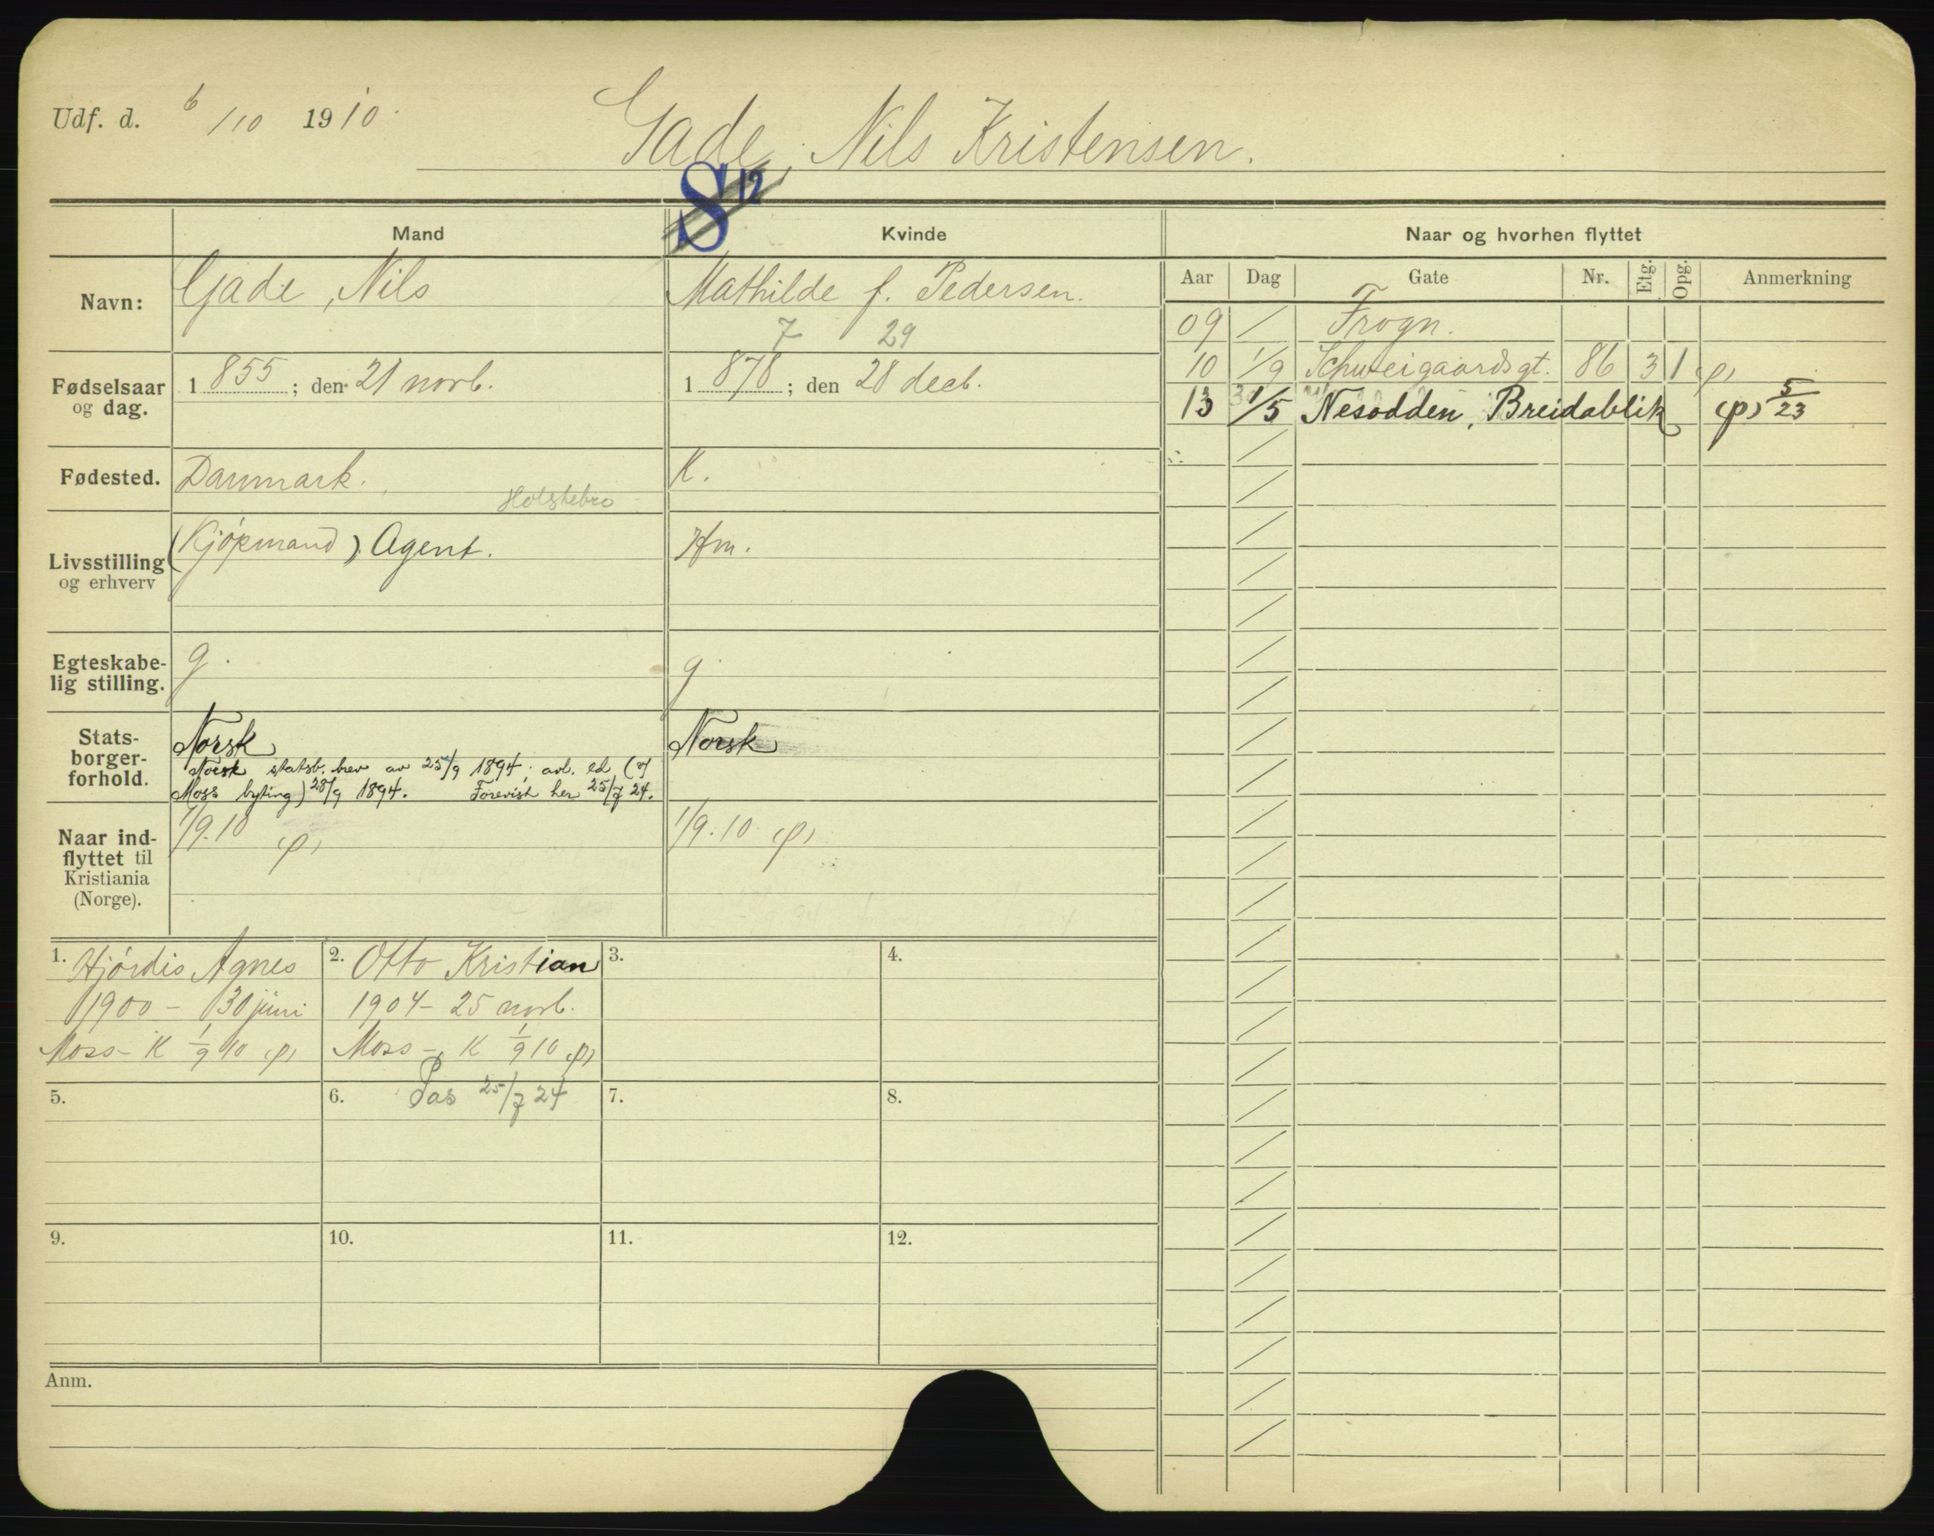 Udf. d. 6/10 1910.
Gade, Nils Kristensen.
S 12
Mand
Kvinde
Naar og hvorhen flyttet
Navn:
Gade, Nils
Mathilde f. Pedersen.
Fødselsaar og dag.
1855; den 21 novb.
7 29
1878; den 28 decb.
Fødested.
Danmark.
Holstebro
K.
Livsstilling og erhverv
(Kjøpmand) Agent.
Hm.
Egteskabe-
lig stilling.
g.
g.
Stats-
borger-
forhold.
Norsk
Norsk statsb. brev av 25/9 1894, avl. ed (v/
Moss byting) 28/9 1894. Forevist her 25/7 24.
Norsk
Naar ind-
flyttet til
Kristiania
(Norge).
1/9.10 (p)
1/9.10 (p)
1. Hjørdis Agnes
1900 - 30 juni
Moss - K 1/9 10 (p)
2. Otto Kristian
1904 - 25 novb.
Moss -, K 1/9 10 (p)
3.
4.
5.
6. Pas 25/7 24
7.
8.
9.
10.
11.
12.
Anm.
Aar Dag Gate Nr. Etg. Opg. Anmerkning
09 / Frogn.
10 1/9 Schweigaardsgt. 86 3 1 (p)
13 1/5 Nesodden, Breidablik (p) 5/23